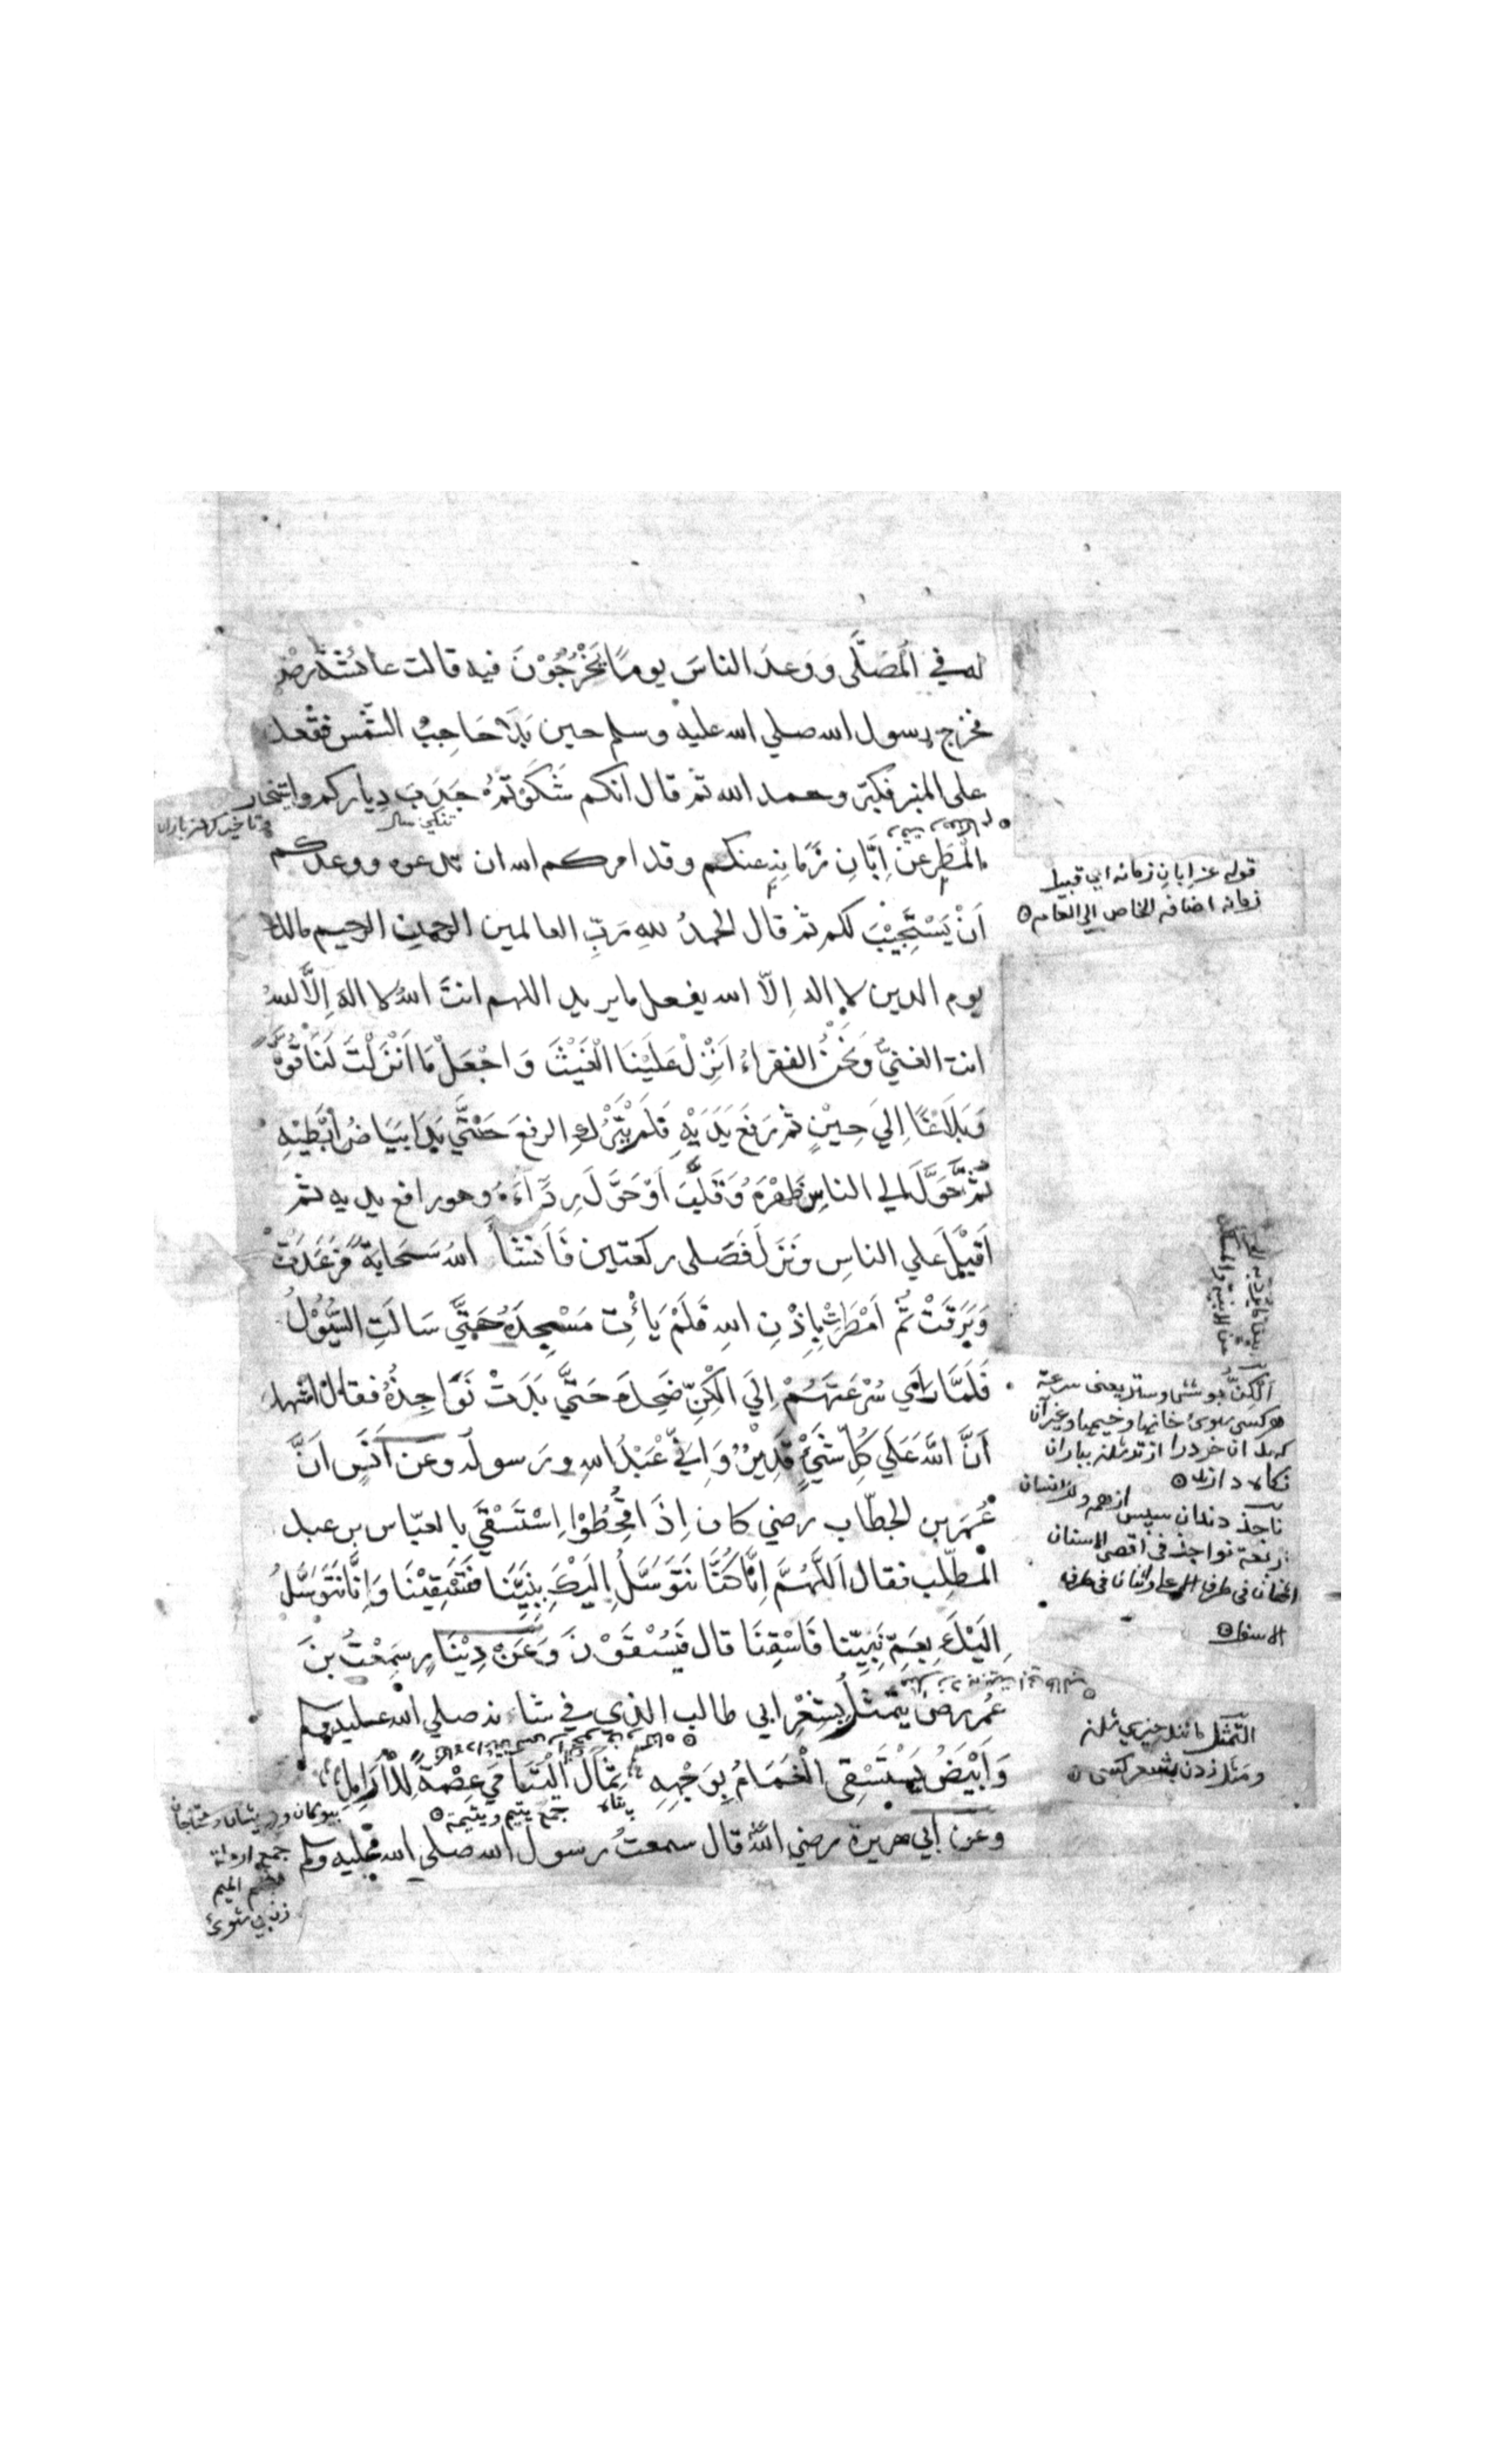 له في المُصَلَّى وَوَعدَ الناسَ يومًا يَخْرُجُوْنَ فيه قالت عائشة رضي
فخرج رسول الله صلي الله عليه وسلم حين بَدَا حَاجِبُ الشمْس فقعد
على المنبر فكبّر وحمد الله ثم قال انكم شَكَوْتُمْ جَدْبَ دِياركم واستيخار
المَطَرِ عَنْ اِبَّانِ زَمَانِهِ عنكم وقد امركم الله ان تدعوه ووعدكم
اَنْ يَسْتَجِيْبَ لكم ثم قال الحمدُ للهِ رَبِّ العالمين الرحمن الرحيم مالك
يوم الدين لا اله اِلّا الله يفعل ما يريد اللهم انتَ اللهُ لا اله اِلَّا انت
انت الغنيُّ وَنَحْنُ الفقراءُ اَنْزِلْ عَلَيْنَا الْغَيْثَ وَاجْعَلْ مَا اَنْزَلْتَ لَنَا قُوَّةً
وَبَلَاغًا اِلَي حِيْنٍ ثم رَفَعَ يَدَيْهِ فَلَمْ يَتْرُكِ الرفعَ حَتَّي بَدَا بَيَاضُ اِبْطَيْهِ
ثُمَّ حَوَّلَ الي الناسِ ظَهْرَهُ وَقَلَّبَ اَوْ حَوَّلَ رِدَاءَهُ وهو رافع يديه ثم
اَقْبَلَ علي الناسِ وَنَزَلَ فَصَلى ركعتين فَاَنْشَأَ اللهُ سَحَابَةً فَرَعَدَتْ
وَبَرَقَتْ ثُمَّ اَمْطَرَتْ بِاِذْنِ اللهِ فَلَمْ يَأْتِ مَسْجِدَهُ حَتَّي سَالَتِ السُّيُوْلُ
فَلَمَّا رَاَي سُرْعَتَهُمْ اِلَي الْكِنِّ ضَحِكَ حَتَّي بَدَتْ نَوَاجِذُهُ فقال اشهد
اَنَّ اللهَ عَلَي كُلِّ شَيْءٍ قَدِيْرٌ وَاِنِّي عَبْدُ اللهِ ورَسوله وعن اَنَسٍ اَنَّ
عُمَرَ بن الخطّاب رضي كان اِذَا قُحِطُوْا اِسْتَسْقَي بالعبّاس بن عبد
المطّلب فقال اَللّٰهُمَّ اِنَّا كُنَّا نَتَوَسَّلُ اِلَيْكَ بِنَبِيِّنَا فَتَسْقِيْنَا وَاِنَّا نَتَوَسَّلُ
اِلَيْكَ بِعَمِّ نَبِيِّنا فَاسْقِنَا قال فَيُسْقَوْنَ وَعَنْ دِيْنَارٍ سَمِعْتُ بْنَ
عُمَرَ رض يتمثلُ بِشِعْرِ ابي طالب الذي في شانه صلي الله عليه وسلم
وَاَبْيَضَ يُسْتَسْقَى الْغَمَامُ بِوَجْهِهِ ثِمَالُ الْيَتَامَي عِصْمَةٌ لِلْاَرَامِلِ
وعن ابي هريرة رضي الله قال سمعتُ رسول الله صلي الله عليه وسلم
تنكي سال
تاخير كردن باران
قوله عن اِبانِ زمانه اي قبيل
زمانه اضافه الخاص الي العامه
اَلْكِنّ پوشش وستر يعنى سرعة
هر كسى بسوئ خانها وخيمها وغير آن
كه بدان خود را از تر شدن بباران
نكاه دارند
ناجذ دندان سپس از همه وللانسان
اربعة نواجذ في اقصى الاسنان
اثنان في طرف الاعلى واثنان في طرف
الاسفل
التَّمَثُّل مانند چيزي شدن
ومثل زدن بشعر كسى
جمع يتيم ويتيمة
پناه
بيوكان ودرويشان ومحتاجان
جمع ارملة
بفتح الميم
زن بي شوئ